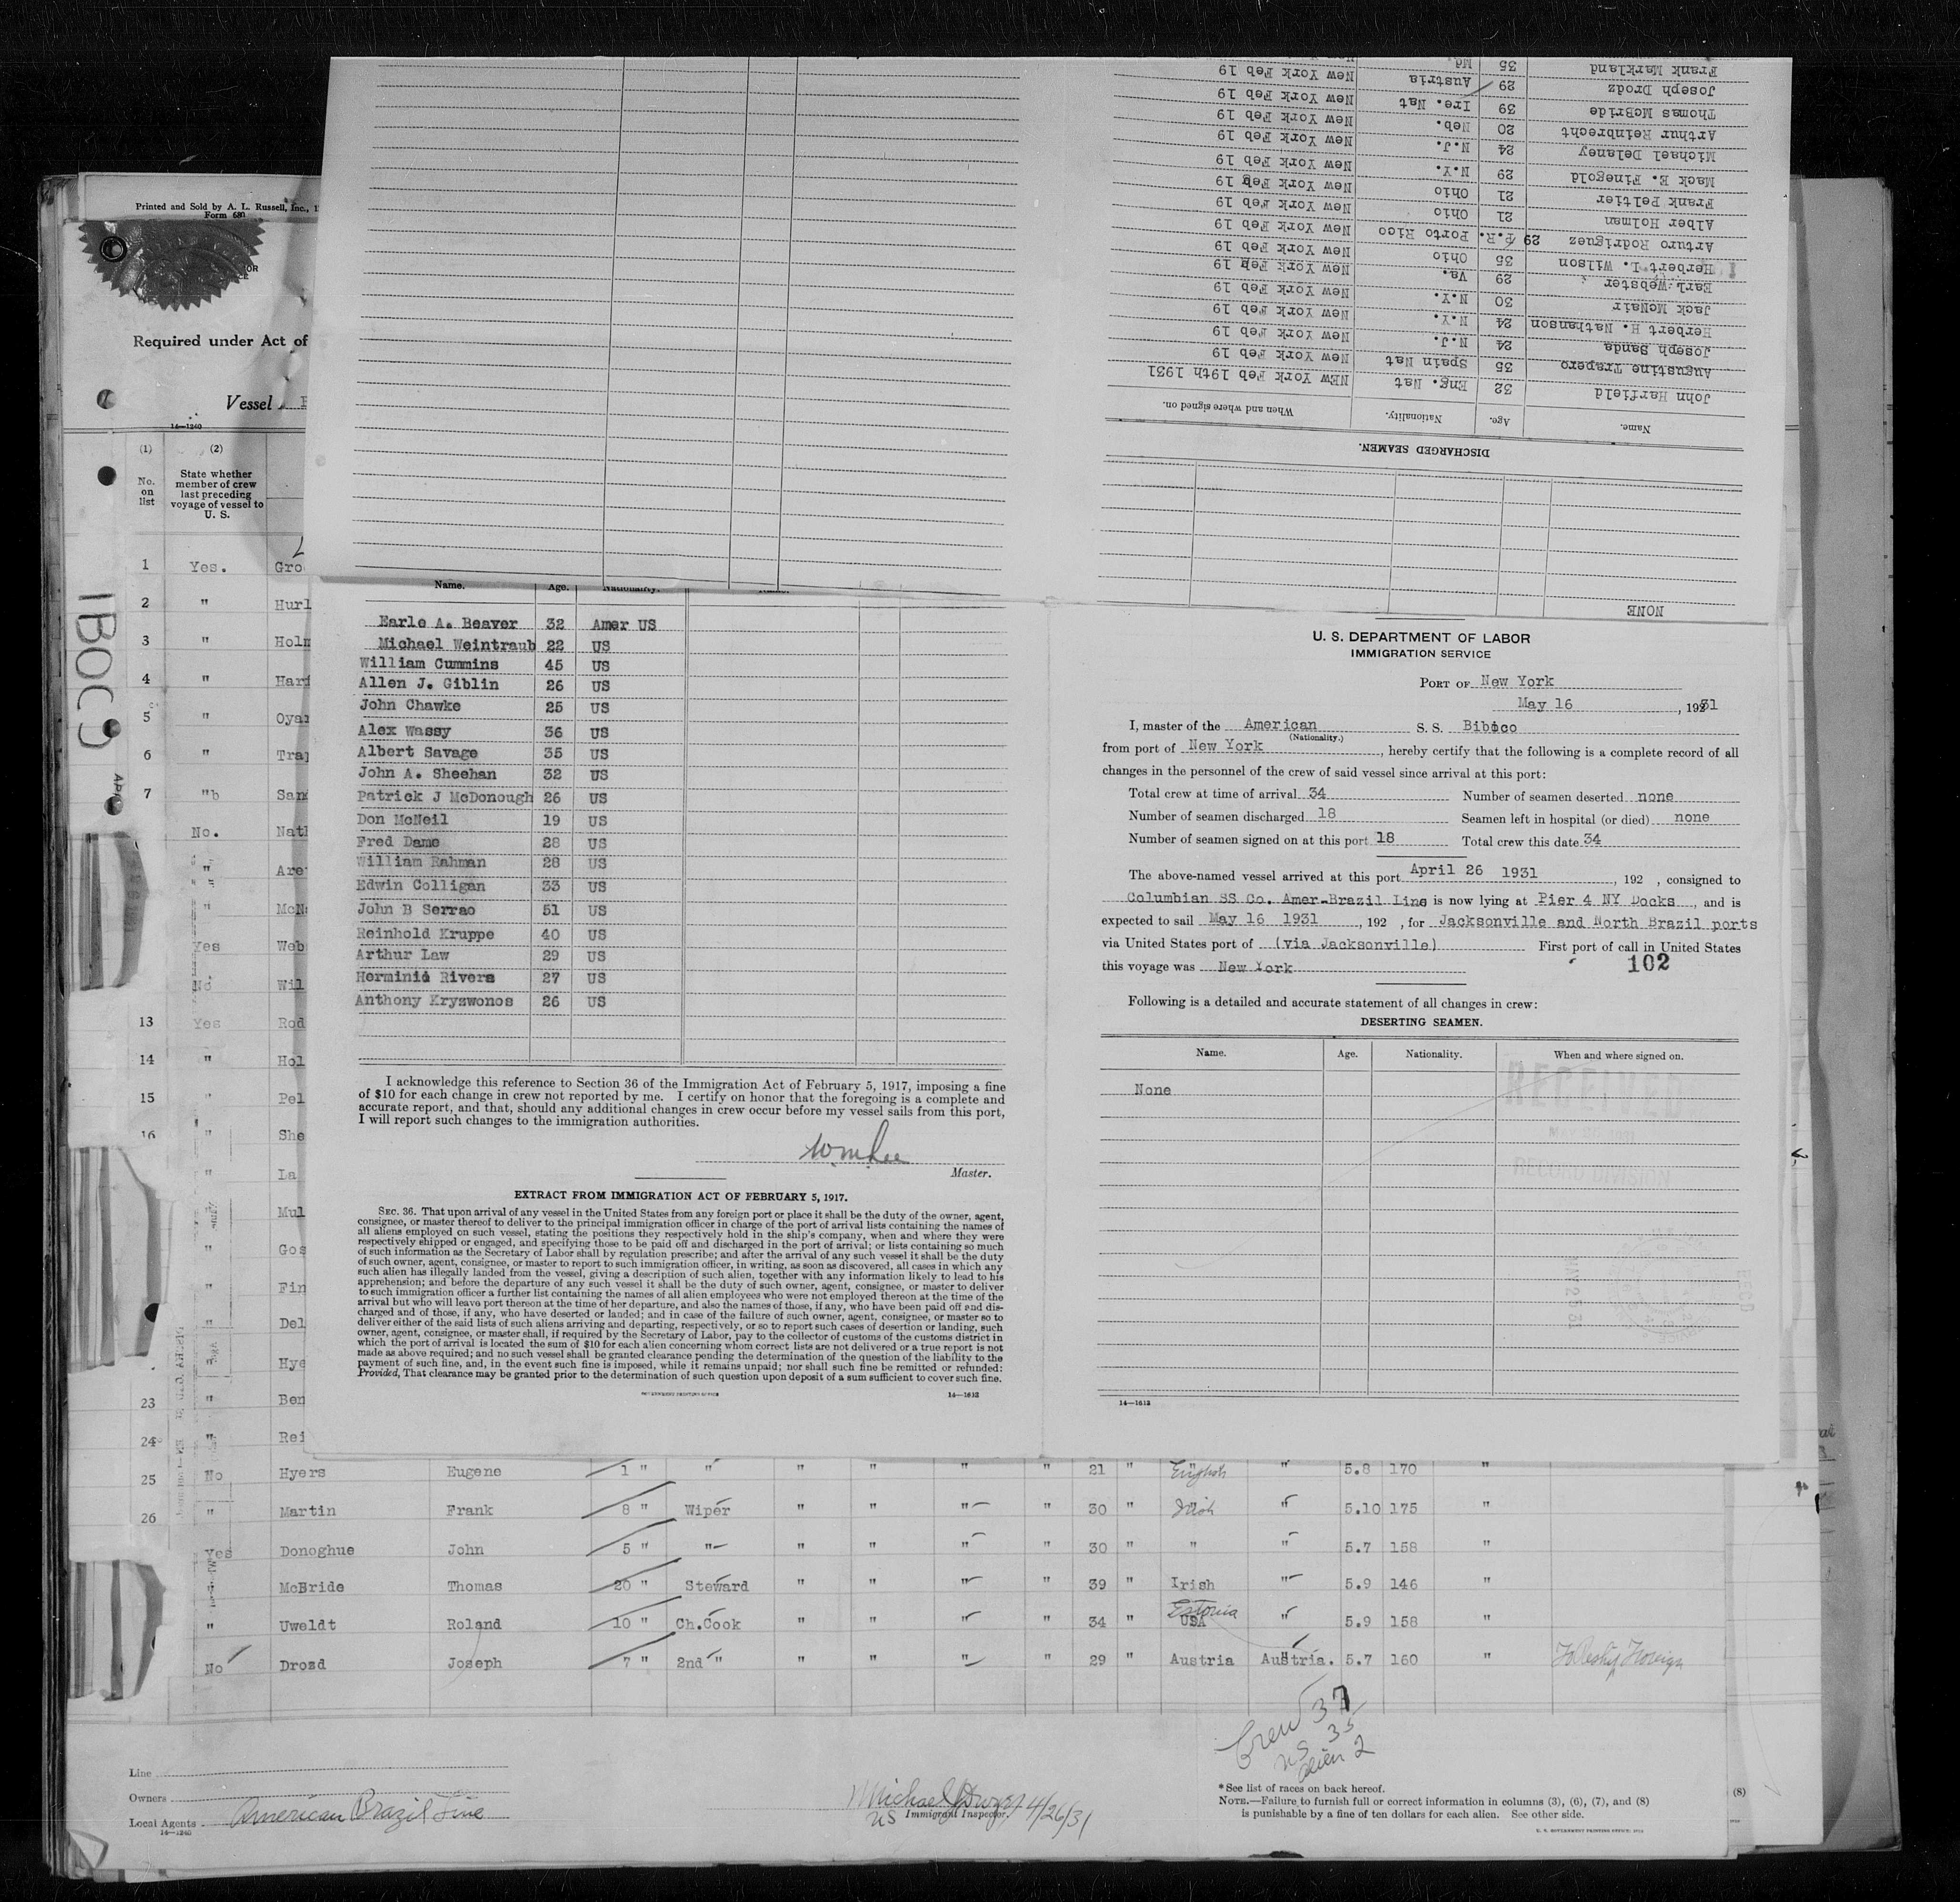 Printed and Sold by A. L. Russell, Inc.,
Form 680
Required under Act of
Vessel
14—1240
(1) (2)
No. on list
State whether member of crew last preceding voyage of vessel to U. S.
1 Yes. Gro
2 " Hurl
3 " Holm
4 " Hari
5 " Oyar
6 " Trap
7 "b San
No. Nath
" Are
" McN
Yes Web
No. Wil
13 Yes Rod
14 " Hol
15 " Pel
16 " She
" La
" Mul
" Gos
" Fin
" Del
" Hye
23 " Ben
24 " Rei
IBOC9
Frank Markland 35 Md New York Feb 19
Joseph Drodz 29 Austria New York Feb 19
Thomas McBride 39 Ire. Nat New York Feb 19
Arthur Reinbrecht 20 Neb. New York Feb 19
Michael Delaney 24 N.J. New York Feb 19
Mack E. Finegold 29 N.Y. New York Feb 19
Frank Peltier 21 Ohio New York Feb 19
Alber Holman 21 Ohio New York Feb 19
Arturo Rodriguez 29 P.R. Porto Rico New York Feb 19
Herbert I. Wilson 35 Ohio New York Feb 19
Earl Webster 29 Va. New York Feb 19
Jack McNair 30 N.Y. New York Feb 19
Herbert H. Nathanson 24 N.Y. New York Feb 19
Joseph Sanda 24 N.J. New York Feb 19
Augustine Trapero 35 Spain Nat New York Feb 19
John Harfield 32 Eng. Nat NEW York Feb 19th 1931
Name. Age. Nationality. When and where signed on.
DISCHARGED SEAMEN.
NONE
Name. Age. Nationality.
Earle A. Beaver 32 Amer US
Michael Weintraub 22 US
William Cummins 45 US
Allen J. Giblin 26 US
John Chawke 25 US
Alex Wassy 36 US
Albert Savage 35 US
John A. Sheehan 32 US
Patrick J McDonough 26 US
Don McNeil 19 US
Fred Dame 28 US
William Rahman 28 US
Edwin Colligan 33 US
John B Serrao 51 US
Reinhold Kruppe 40 US
Arthur Law 29 US
Herminio Rivera 27 US
Anthony Kryswonos 26 US
I acknowledge this reference to Section 36 of the Immigration Act of February 5, 1917, imposing a fine
of $10 for each change in crew not reported by me. I certify on honor that the foregoing is a complete and
accurate report, and that, should any additional changes in crew occur before my vessel sails from this port,
I will report such changes to the immigration authorities.
Wm Lee
Master.
EXTRACT FROM IMMIGRATION ACT OF FEBRUARY 5, 1917.
SEC. 36. That upon arrival of any vessel in the United States from any foreign port or place it shall be the duty of the owner, agent,
consignee, or master thereof to deliver to the principal immigration officer in charge of the port of arrival lists containing the names of
all aliens employed on such vessel, stating the positions they respectively hold in the ship's company, when and where they were
respectively shipped or engaged, and specifying those to be paid off and discharged in the port of arrival; or lists containing so much
of such information as the Secretary of Labor shall by regulation prescribe; and after the arrival of any such vessel it shall be the duty
of such owner, agent, consignee, or master to report to such immigration officer, in writing, as soon as discovered, all cases in which any
such alien has illegally landed from the vessel, giving a description of such alien, together with any information likely to lead to his
apprehension; and before the departure of any such vessel it shall be the duty of such owner, agent, consignee, or master to deliver
to such immigration officer a further list containing the names of all alien employees who were not employed thereon at the time of the
arrival but who will leave port thereon at the time of her departure, and also the names of those, if any, who have been paid off and dis-
charged and of those, if any, who have deserted or landed; and in case of the failure of such owner, agent, consignee, or master so to
deliver either of the said lists of such aliens arriving and departing, respectively, or so to report such cases of desertion or landing, such
owner, agent, consignee, or master shall, if required by the Secretary of Labor, pay to the collector of customs of the customs district in
which the port of arrival is located the sum of $10 for each alien concerning whom correct lists are not delivered or a true report is not
made as above required; and no such vessel shall be granted clearance pending the determination of the question of the liability to the
payment of such fine, and, in the event such fine is imposed, while it remains unpaid; nor shall such fine be remitted or refunded:
Provided, That clearance may be granted prior to the determination of such question upon deposit of a sum sufficient to cover such fine.
GOVERNMENT PRINTING OFFICE 14—1612
U. S. DEPARTMENT OF LABOR
IMMIGRATION SERVICE
PORT OF New York
May 16, 19231
I, master of the American S. S. Biboco
(Nationality.)
from port of New York, hereby certify that the following is a complete record of all
changes in the personnel of the crew of said vessel since arrival at this port:
Total crew at time of arrival 34 Number of seamen deserted none
Number of seamen discharged 18 Seamen left in hospital (or died) none
Number of seamen signed on at this port 18 Total crew this date 34
The above-named vessel arrived at this port April 26 1931, 192 , consigned to
Columbian SS Co. Amer-Brazil Line is now lying at Pier 4 NY Docks, and is
expected to sail May 16 1931, 192 , for Jacksonville and North Brazil ports
via United States port of (via Jacksonville) First port of call in United States
this voyage was New York 102
Following is a detailed and accurate statement of all changes in crew:
DESERTING SEAMEN.
Name. Age. Nationality. When and where signed on.
None
RECEIVED
RECORD DIVISION
14—1612
25 No Hyers Eugene 1 " " " " " " 21 " English " 5.8 170 "
26 " Martin Frank 8 " Wiper " " " " 30 " Irish " 5.10 175 "
Yes Donoghue John 5 " " " " " " 30 " " " 5.7 158 "
" McBride Thomas 20 " Steward " " " " 39 " Irish " 5.9 146 "
" Uweldt Roland 10 " Ch.Cook " " " " 34 " Estonia USA " 5.9 158 "
No Drozd Joseph 7 " 2nd " " " " " 29 " Austria Austria. 5.7 160 "
Crew 37
US 35
Alien 2
Line
Owners
Local Agents American Brazil Line
14—1240
Michael Dwyer 4/26/31
US Immigrant Inspector.
*See list of races on back hereof.
NOTE.—Failure to furnish full or correct information in columns (3), (6), (7), and (8)
is punishable by a fine of ten dollars for each alien. See other side.
(8)